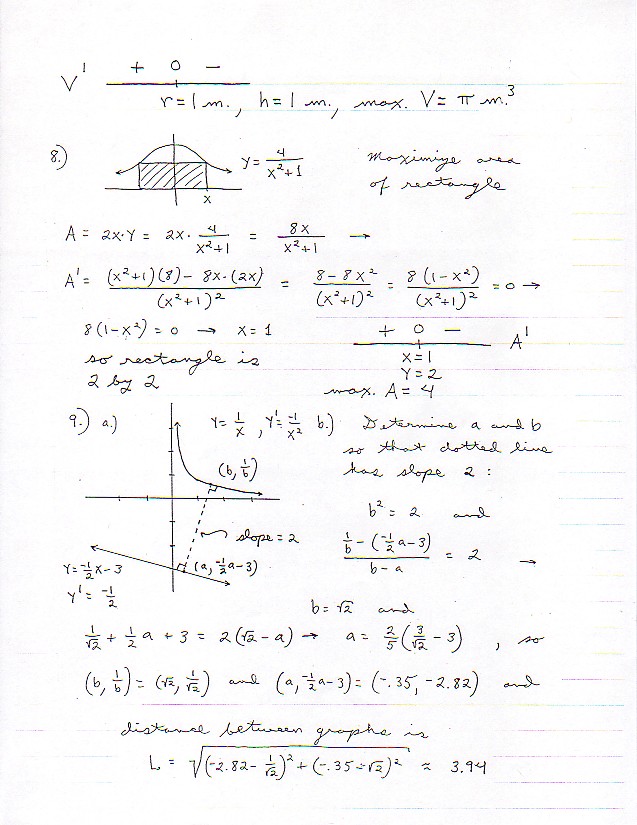 V' + 0 −
r = 1 m., h = 1 m., max. V = π m.³
8.) y = 4/(x²+1) Maximize area
of rectangle
x
A = 2x·y = 2x · 4/(x²+1) = 8x/(x²+1) →
A' = ((x²+1)(8) − 8x·(2x))/(x²+1)² = (8 − 8x²)/(x²+1)² = 8(1−x²)/(x²+1)² = 0 →
8(1−x²) = 0 → x = 1 + 0 − A'
so rectangle is x = 1
2 by 2 y = 2
max. A = 4
9.) a.) y = 1/x , y' = −1/x² b.) Determine a and b
so that dotted line
(b, 1/b) has slope 2 :
b² = 2 and
slope = 2 (1/b − (−1/2 a − 3))/(b − a) = 2 →
y = −1/2 x − 3 (a, −1/2 a − 3)
y' = −1/2
b = √2 and
1/√2 + 1/2 a + 3 = 2(√2 − a) → a = 2/5 (3/√2 − 3) , so
(b, 1/b) = (√2, 1/√2) and (a, −1/2 a − 3) = (−.35, −2.82) and
distance between graphs is
L = √((−2.82 − 1/√2)² + (−.35 − √2)²) ≈ 3.94